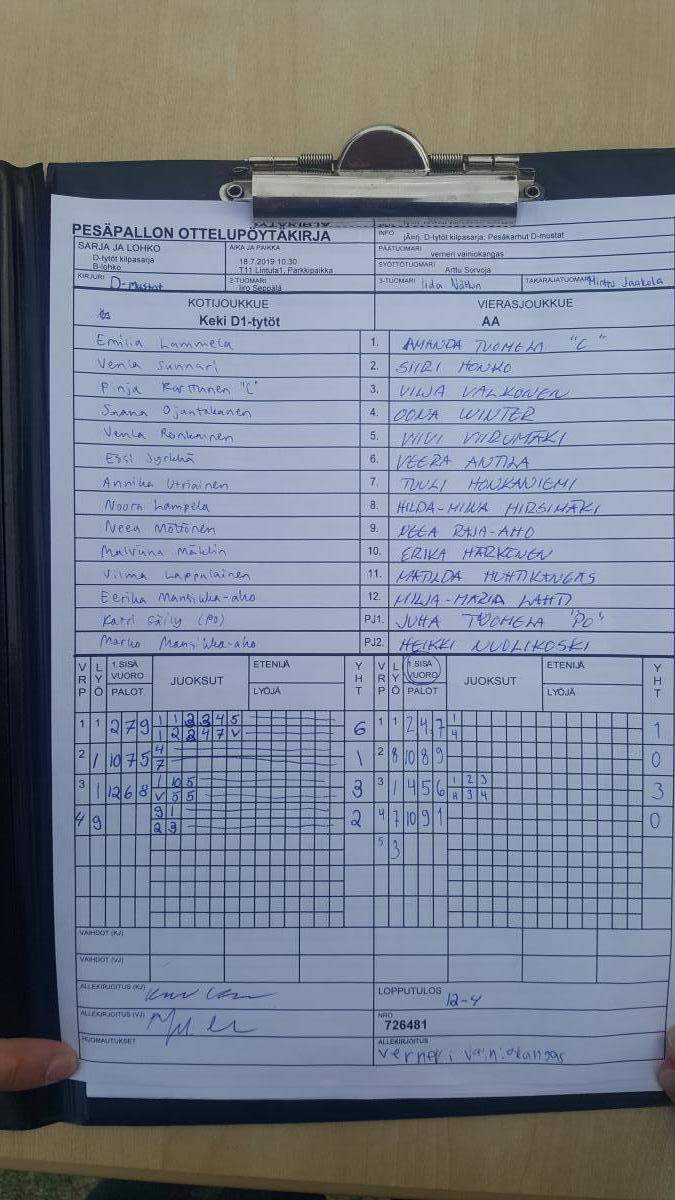 PESÄPALLON OTTELUPÖYTÄKIRJA
INFO jÄ¤rj. D-tytöt kilpasarja: Pesäkarhut D-mustat
SARJA JA LOHKO AIKA JA PAIKKA PÄÄTUOMARI verneri vainiokangas
D-tytöt kilpasarja 18.7.2019 10:30 SYÖTTÖTUOMARI Arttu Sorvoja
B-lohko T11 Lintula1, Parkkipaikka
KIRJURI D-mustat 2-TUOMARI Iiro Seppälä 3-TUOMARI Iida TAKARAJATUOMARI Minttu Jaakola
KOTIJOUKKUE VIERASJOUKKUE
Keki D1-tytöt AA
Emilia Lammela 1. AMANDA TUOMELA "C"
Venla Sunnari 2. SIIRI HONKO
Pinja Karttunen "C" 3. VILJA VALKONEN
Saana Ojantakanen 4. OONA WINTER
Venla Ronkainen 5. VIIVI VIIRUMÄKI
Essi Jyrkkä 6. VEERA ANTILA
Annika Utriainen 7. TUULI HONKANIEMI
Noora Lampela 8. HILDA-MILJA HIRSIMÄKI
Neea Möttönen 9. NEEA RAJA-AHO
Malviina Mäklin 10. ERIKA HARKONEN
Vilma Lappalainen 11. MATILDA HUHTIKANGAS
Eerika Mansikka-aho 12. MILJA-MARIA LAHTI
Katri Säily (PO) PJ1. JUHA TUOMELA "PO"
Marko Mansikka-aho PJ2. HEIKKI NUOLIKOSKI
VRP LYÖ 1.SISÄ VUORO PALOT JUOKSUT ETENIJÄ LYÖJÄ YHT VRP LYÖ 1.SISÄ VUORO PALOT JUOKSUT ETENIJÄ LYÖJÄ YHT
1 1 2 7 9 1 1 2 3 4 5 6 1 1 2 4 7 1 1
1 2 2 4 7 V 4
2 1 10 7 5 4 1 2 8 10 8 9 0
7
3 1 12 6 8 1 10 5 3 3 1 4 5 6 1 2 3 3
V 5 5 H 3 4
4 9 9 1 2 4 7 10 9 1 0
2 3
5 3
VAIHDOT (KJ)
VAIHDOT (VJ)
ALLEKIRJOITUS (KJ) LOPPUTULOS 12-4
ALLEKIRJOITUS (VJ) NRO 726481
HUOMAUTUKSET ALLEKIRJOITUS verneri vainiokangas